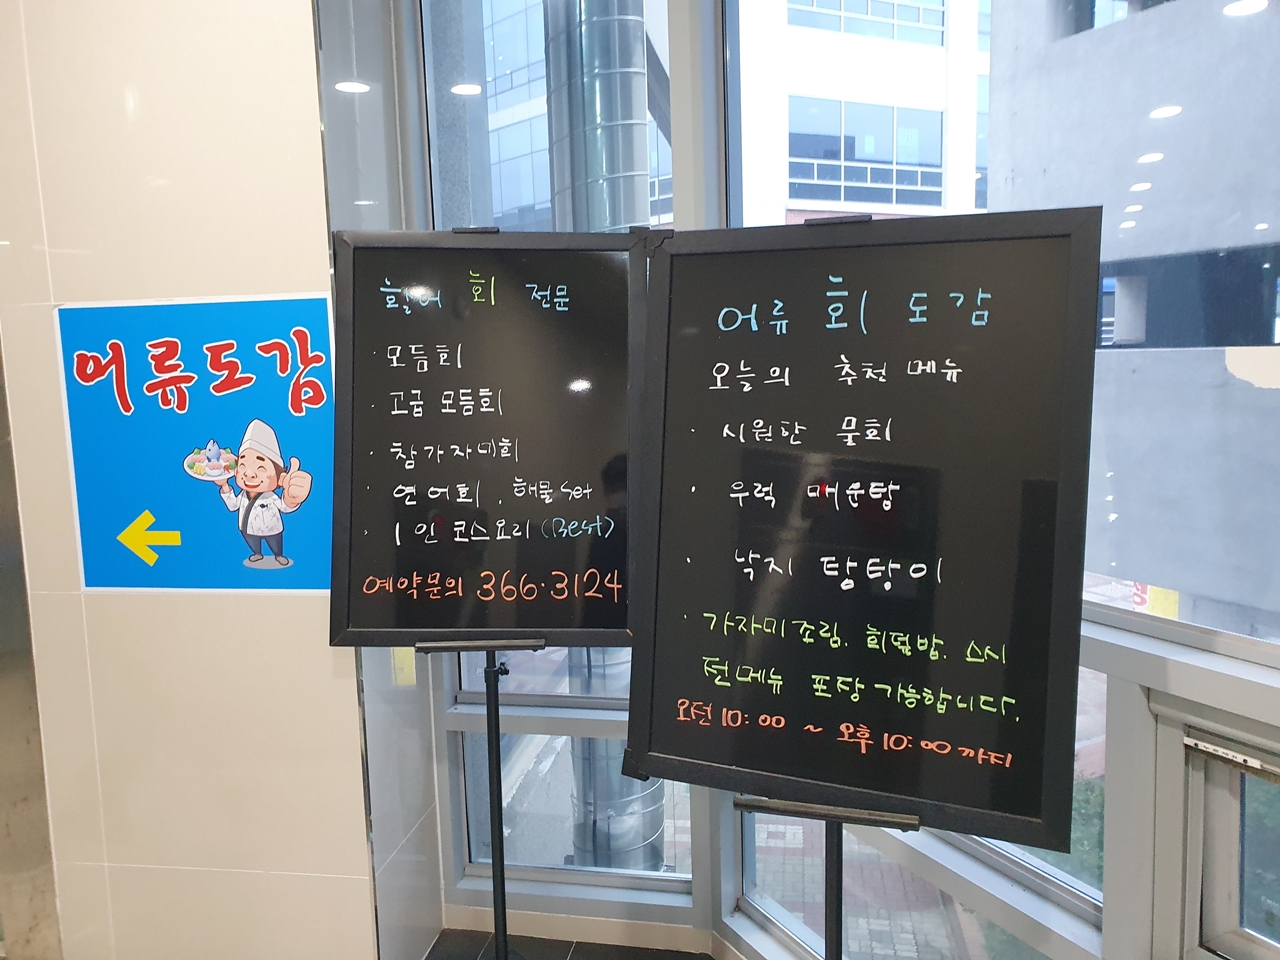 어류도감
활어 회 전문
· 모듬회
· 고급 모듬회
· 참가자미회
· 연어회, 해물 Set
· 1인 코스요리 (Best)
예약문의 366·3124
어류 회 도감
오늘의 추천 메뉴
· 시원한 물회
· 우럭 매운탕
· 낙지 탕탕이
· 가자미조림, 회덮밥, 스시
전메뉴 포장 가능합니다.
오전 10:00 ~ 오후 10:00 까지